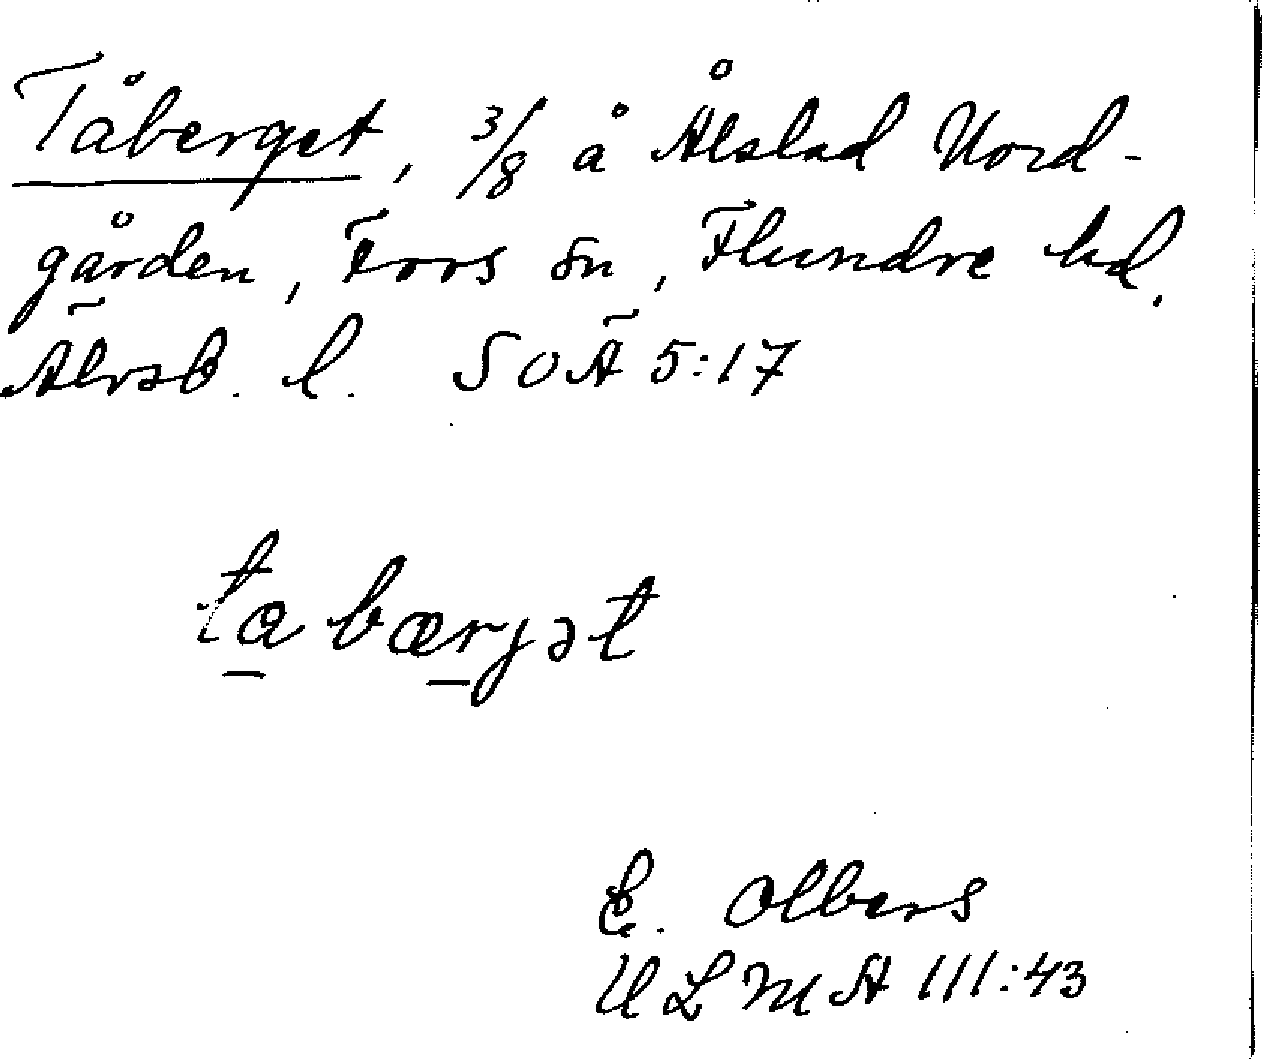 Tåberget, 3/8 å Ålstad Nord-
gården, Fors sn, Flundre hd,
Älvsb. l. SOÄ 5:17
ta bærjət
E. Olbers
ULMA 111:43